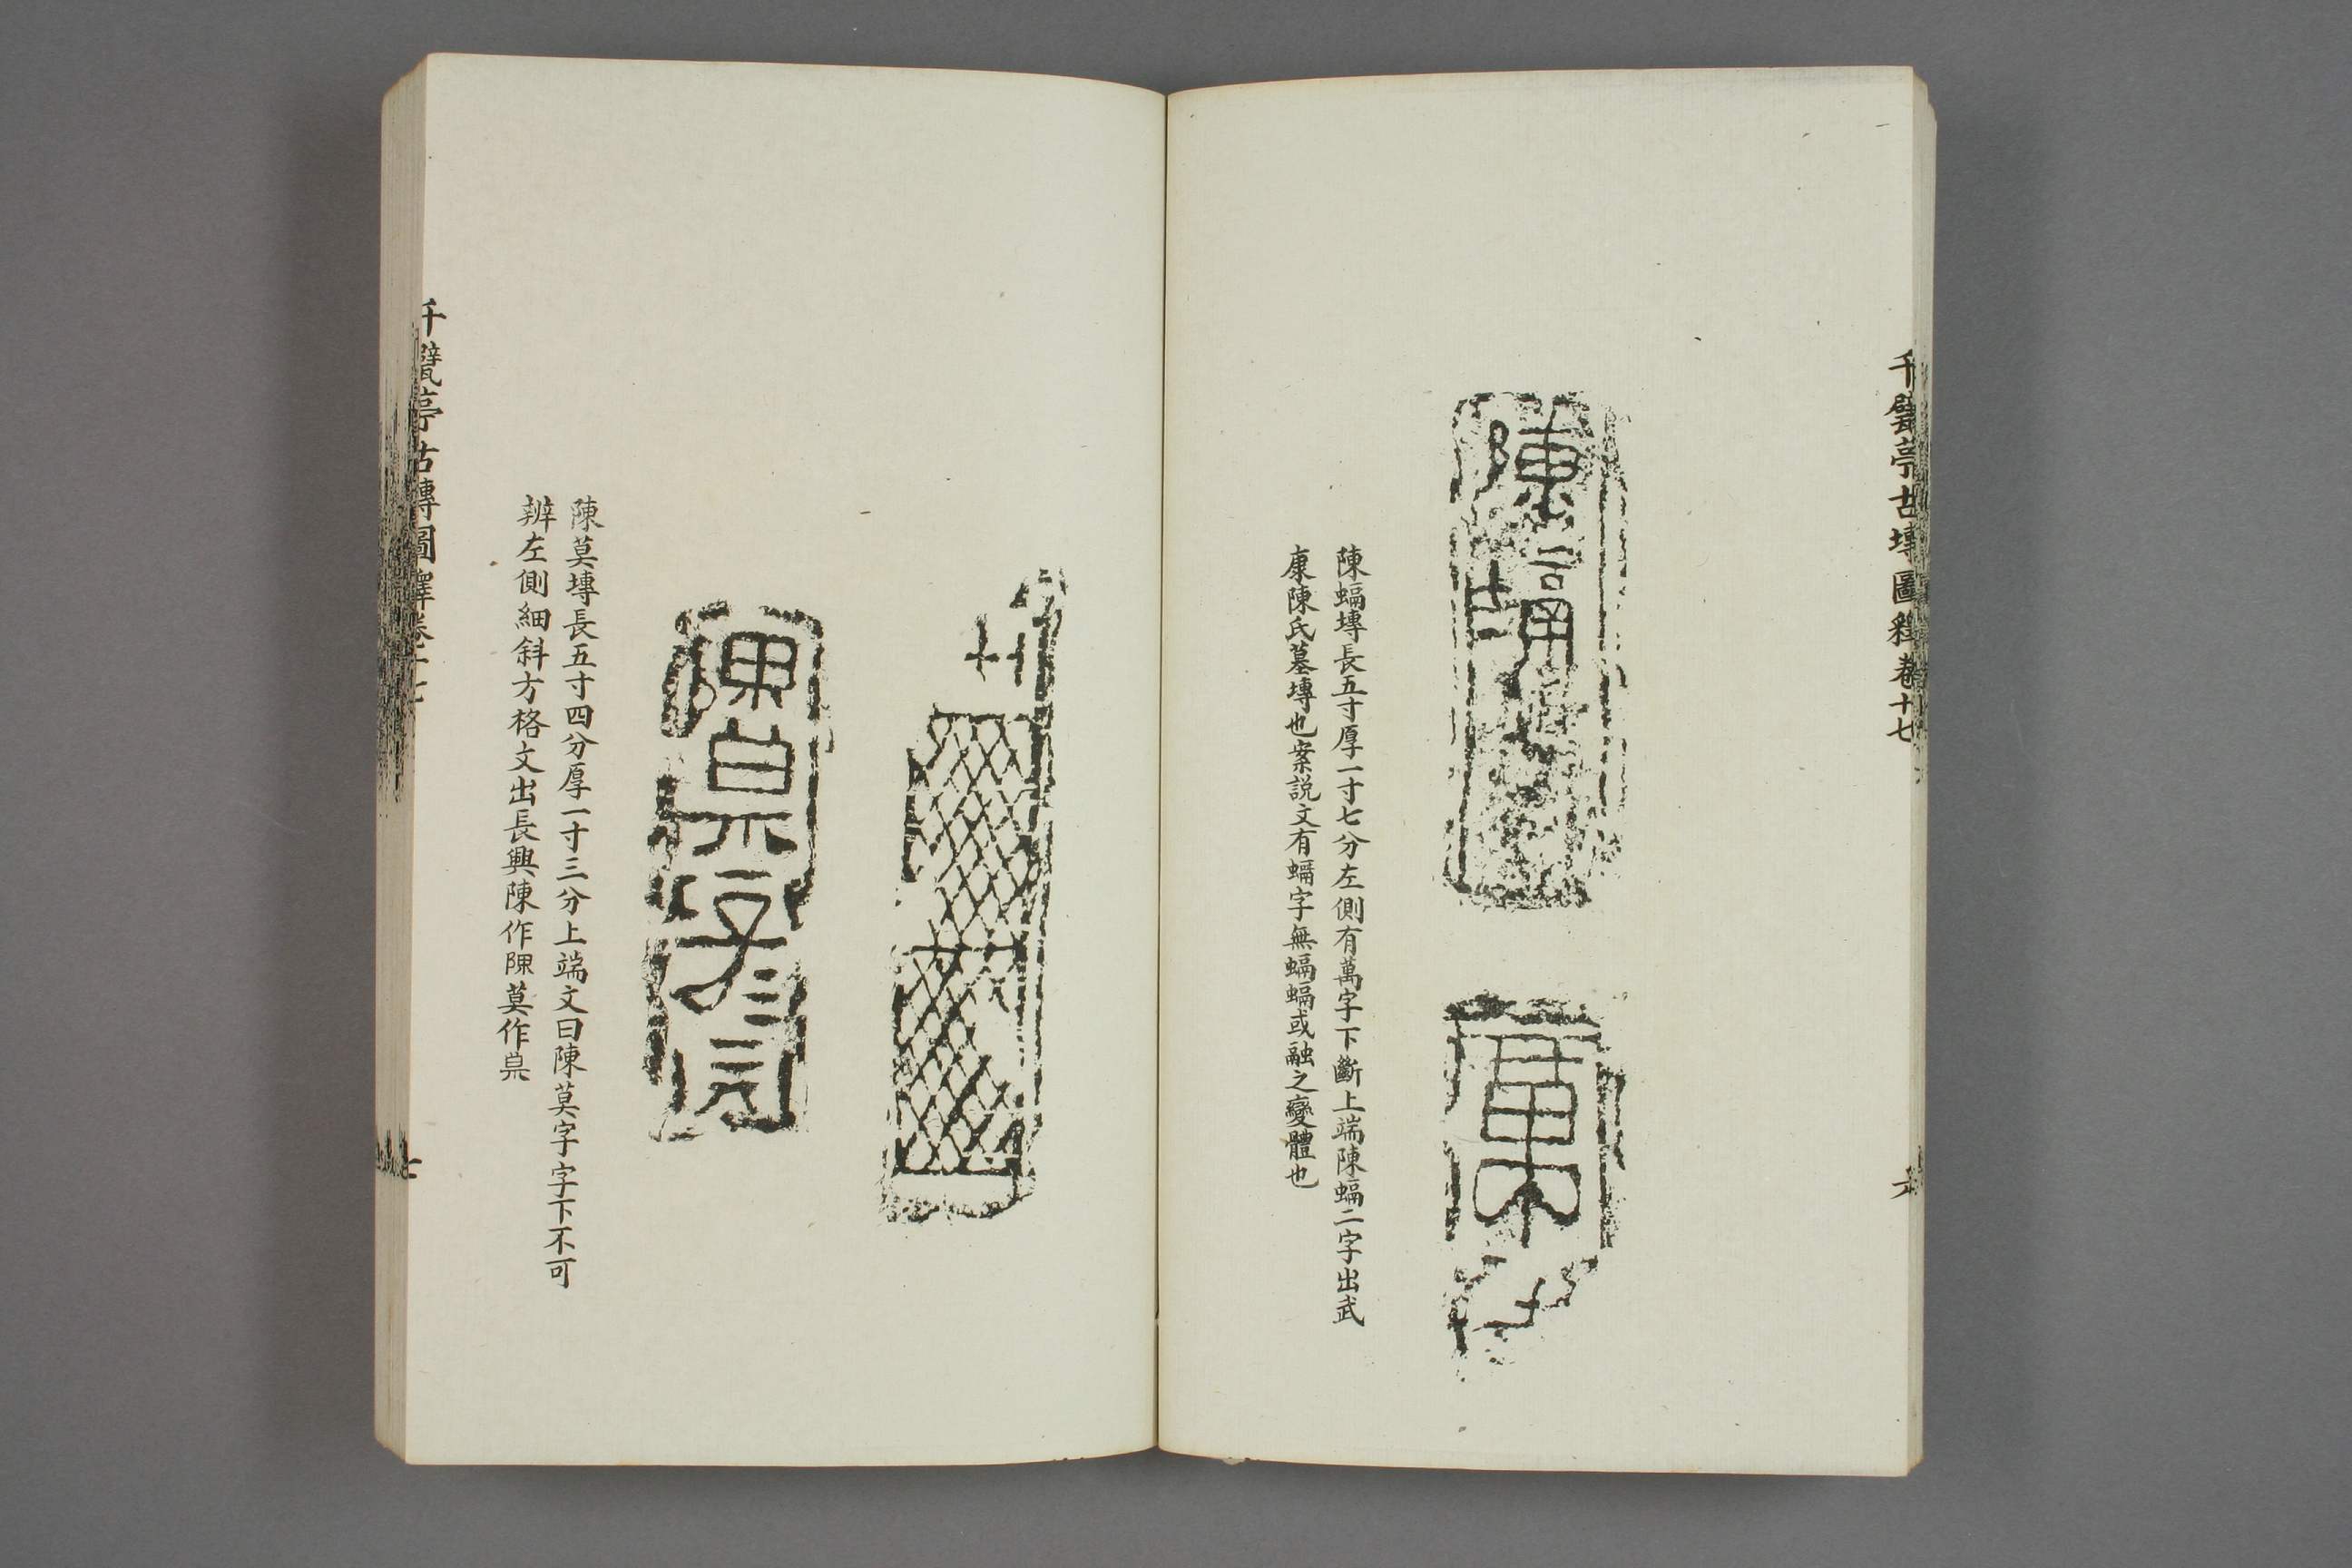 千甓亭古塼圖釋卷十七
六
陳
萬
陳蝠塼長五寸厚一寸七分左側有萬字下斷上端陳蝠二字出武
康陳氏墓塼也案説文有蝠字無蝠蝠或融之變體也
陳莫
陳莫塼長五寸四分厚一寸三分上端文曰陳莫字字下不可
辨左側細斜方格文出長興陳作陳莫作莫
千甓亭古塼圖釋卷十七
七